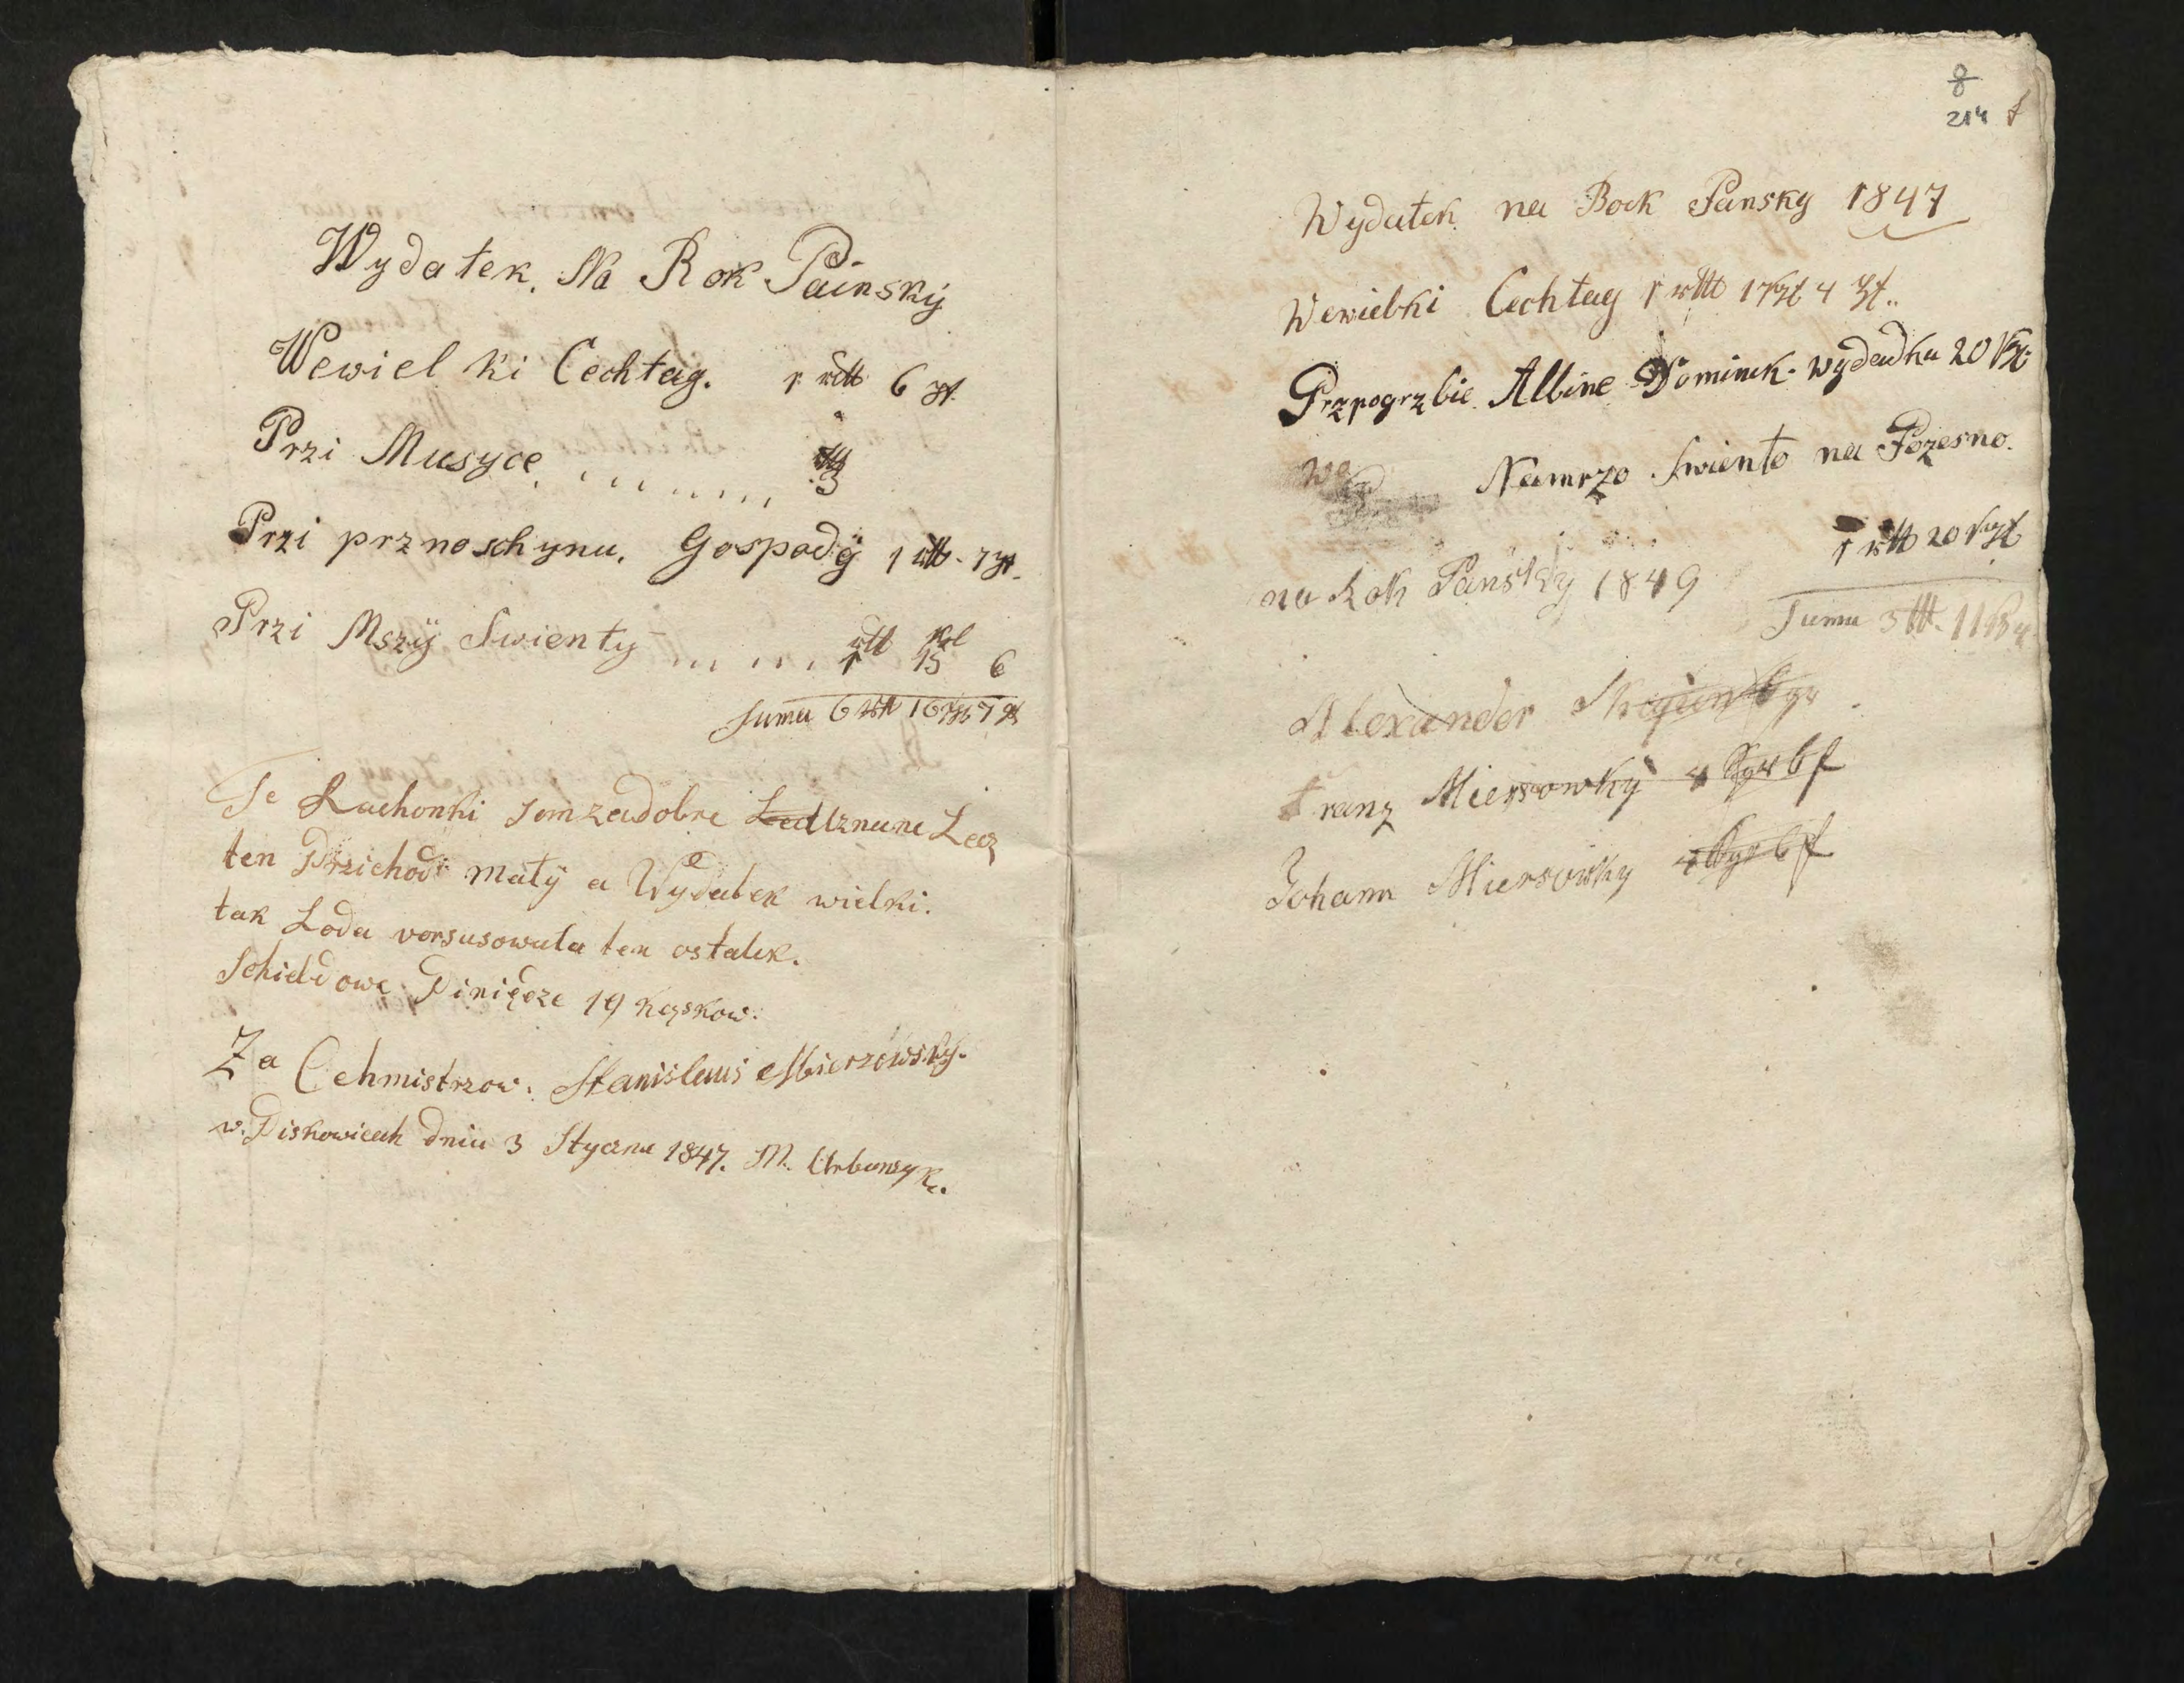 Wydatek. Na Rok Painskÿ
Wewiel ki Cechtag. 1 rtll 6
Przi Musyce. 3
Przi prznoschynu. Gospodÿ 1 rtll - 7
Przi Mszÿ Swienty 1 rtll 15 6
Suma 6 rtll 16 7
Te Rachonki som zadobre Uznane Lecz
ten Przichod malÿ a Wydatek wielki.
tak Loda vorsusowala ten ostatek.
Schieldowe Piniędze 19 Kąskow.
Za Cehmistrzow. Stanislaus Mierzowsky.
w. Piskowicach dniu 3 Stycznia 1847. M. Urbanzyk.
8
214
Wydatek na Rock Pansky 1847
Wewielki Cechtag 1 rtll 17 4
Przpogrzbie Albine Dominek. wydadku 20
Namrzo Swiento na Pozesno.
1 rtll 20
na Rok Pansky 1849
Suma 3 11
Alexander
Franz Miersowky 4
Johann Miersowky